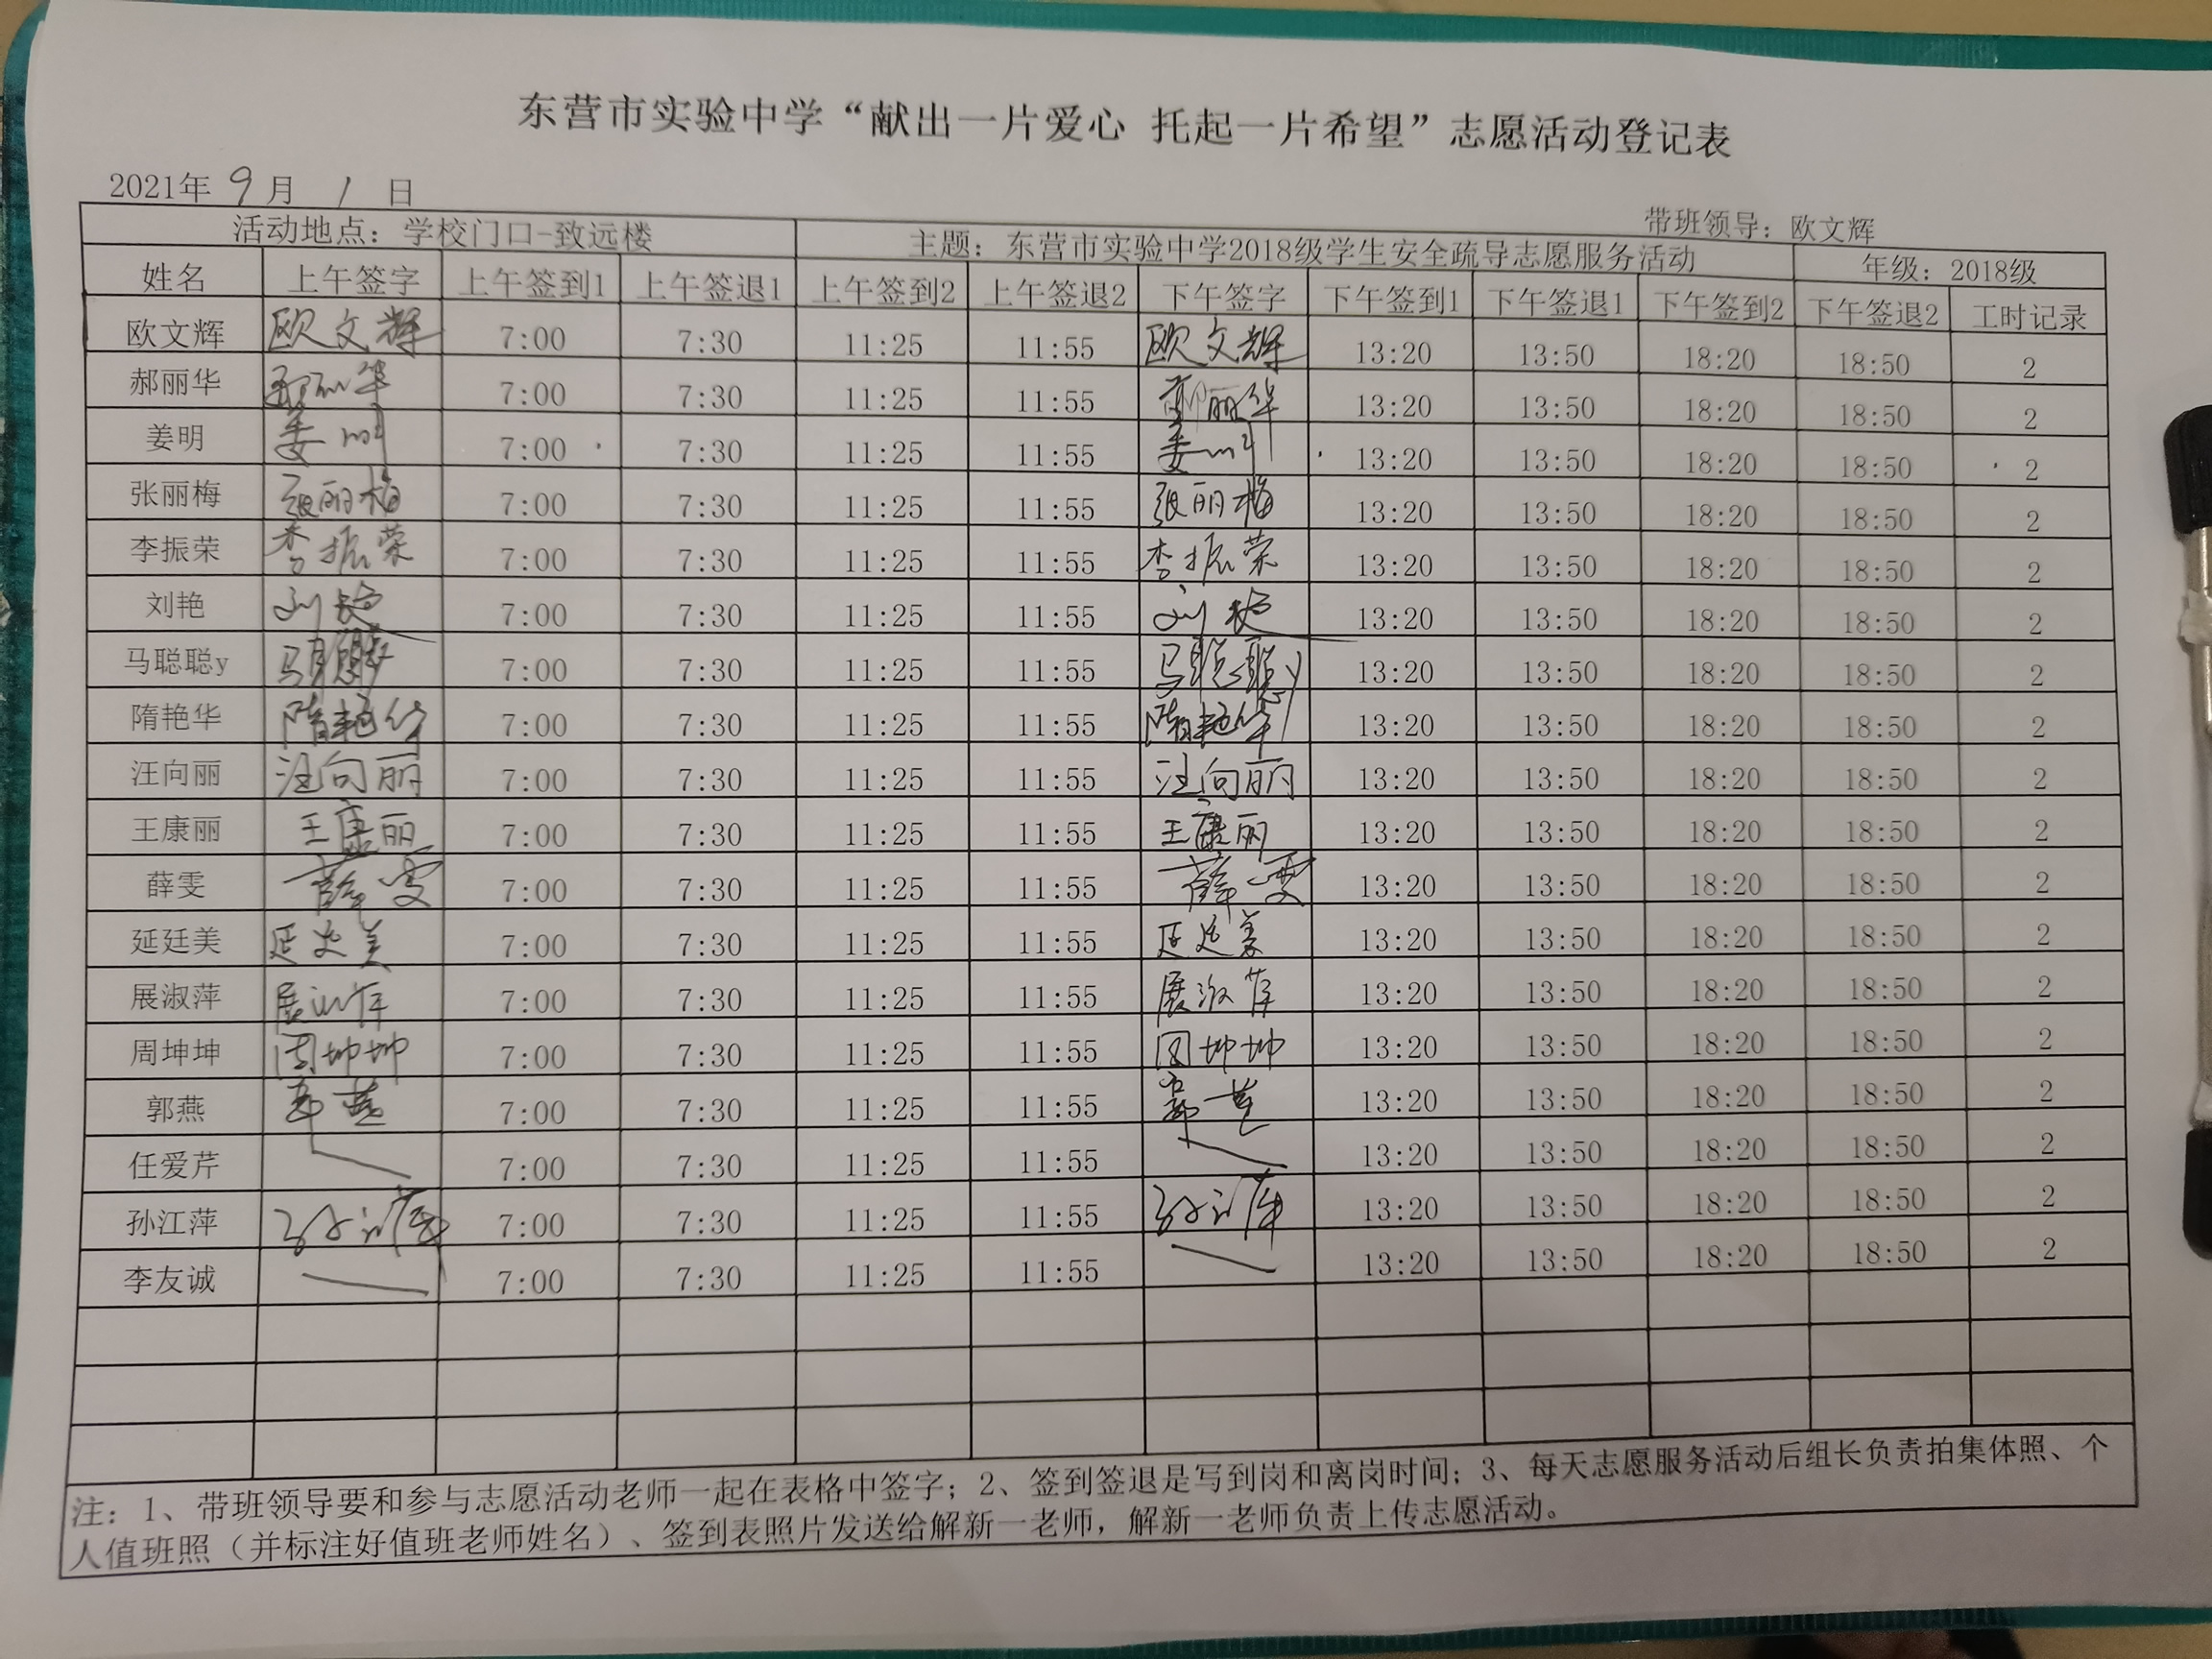 东营市实验中学“献出一片爱心 托起一片希望”志愿活动登记表
2021年 9 月 1 日
带班领导：欧文辉
活动地点：学校门口-致远楼 主题：东营市实验中学2018级学生安全疏导志愿服务活动 年级：2018级
姓名 上午签字 上午签到1 上午签退1 上午签到2 上午签退2 下午签字 下午签到1 下午签退1 下午签到2 下午签退2 工时记录
欧文辉 欧文辉 7:00 7:30 11:25 11:55 欧文辉 13:20 13:50 18:20 18:50 2
郝丽华 郝丽华 7:00 7:30 11:25 11:55 郝丽华 13:20 13:50 18:20 18:50 2
姜明 姜明 7:00 7:30 11:25 11:55 姜明 13:20 13:50 18:20 18:50 2
张丽梅 张丽梅 7:00 7:30 11:25 11:55 张丽梅 13:20 13:50 18:20 18:50 2
李振荣 李振荣 7:00 7:30 11:25 11:55 李振荣 13:20 13:50 18:20 18:50 2
刘艳 刘艳 7:00 7:30 11:25 11:55 刘艳 13:20 13:50 18:20 18:50 2
马聪聪y 马聪聪y 7:00 7:30 11:25 11:55 马聪聪y 13:20 13:50 18:20 18:50 2
隋艳华 隋艳华 7:00 7:30 11:25 11:55 隋艳华 13:20 13:50 18:20 18:50 2
汪向丽 汪向丽 7:00 7:30 11:25 11:55 汪向丽 13:20 13:50 18:20 18:50 2
王康丽 王康丽 7:00 7:30 11:25 11:55 王康丽 13:20 13:50 18:20 18:50 2
薛雯 薛雯 7:00 7:30 11:25 11:55 薛雯 13:20 13:50 18:20 18:50 2
延廷美 延廷美 7:00 7:30 11:25 11:55 延廷美 13:20 13:50 18:20 18:50 2
展淑萍 展淑萍 7:00 7:30 11:25 11:55 展淑萍 13:20 13:50 18:20 18:50 2
周坤坤 周坤坤 7:00 7:30 11:25 11:55 周坤坤 13:20 13:50 18:20 18:50 2
郭燕 郭燕 7:00 7:30 11:25 11:55 郭燕 13:20 13:50 18:20 18:50 2
任爱芹 7:00 7:30 11:25 11:55 13:20 13:50 18:20 18:50 2
孙江萍 孙江萍 7:00 7:30 11:25 11:55 孙江萍 13:20 13:50 18:20 18:50 2
李友诚 7:00 7:30 11:25 11:55 13:20 13:50 18:20 18:50 2
注：1、带班领导要和参与志愿活动老师一起在表格中签字；2、签到签退是写到岗和离岗时间；3、每天志愿服务活动后组长负责拍集体照、个
人值班照（并标注好值班老师姓名）、签到表照片发送给解新一老师，解新一老师负责上传志愿活动。